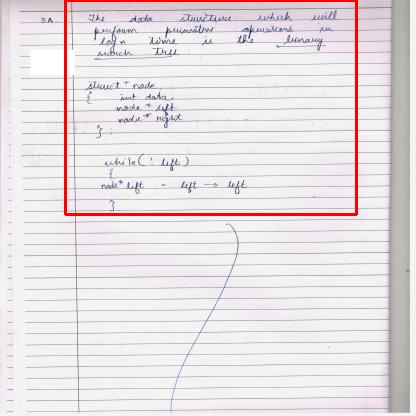 3A. The data structure which will
perform primitive operations in
log n time is the binary
search tree.
struct * node
{ int data
node * left
node * right
} ;
while( : left )
{
node* left = left → left
}